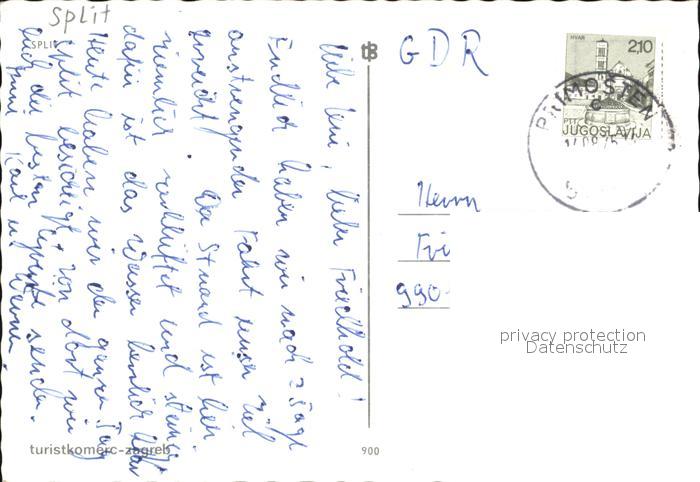 Split
SPLIT
GDR
HVAR
2,10
PTT
JUGOSLAVIJA
PRIMOŠTEN
Herrn
Fri
990
privacy protection
Datenschutz
Liebe Leni, lieber Friedhold!
Endlich haben wir nach 2 Tagen
anstrengender Fahrt unser Ziel
erreicht. Der Strand ist hier
ziemlich zerklüftet und steinig
dafür ist das Wasser herrlich klar
Heute haben wir den ganzen Tag
Split besichtigt von dort wir
euch die besten Grüße senden.
Karl u.
turistkomerc-zagreb
900